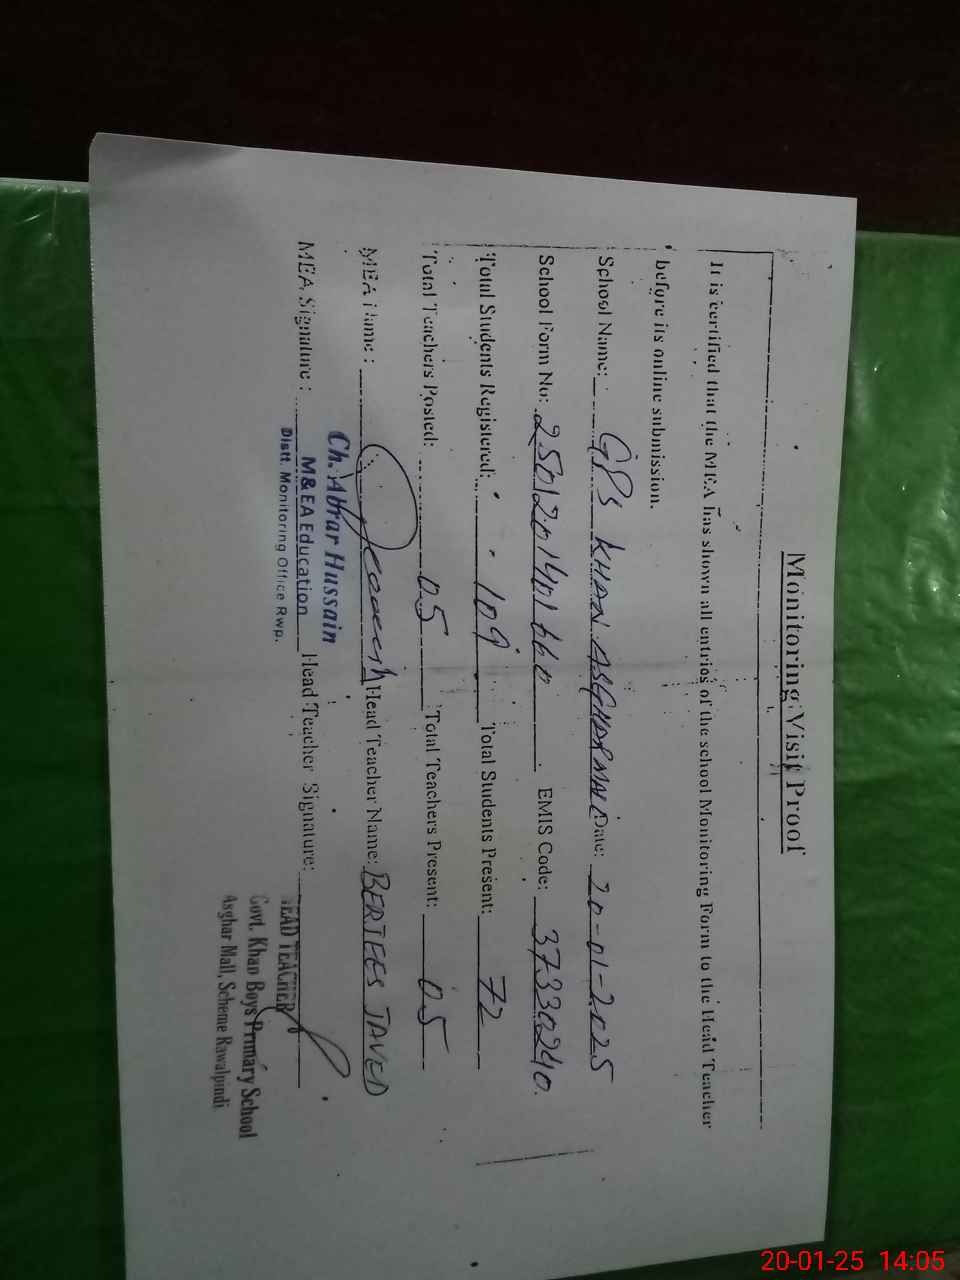 Monitoring Visit Proof
It is certified that the MEA has shown all entries of the school Monitoring Form to the Head Teacher
before its online submission.
School Name: GPS KHAN ASGHAR MAL Date: 20-01-2025
School Form No: 250120141401660 EMIS Code: 37330240
Total Students Registered: 109 Total Students Present: 72
Total Teachers Posted: 05 Total Teachers Present: 05
MEA Name: Head Teacher Name: BERJEES JAVED
MEA Signature: Head Teacher Signature:
Ch. Abrar Hussain
M&EA Education
Distt. Monitoring Office Rwp.
HEAD TEACHER
Govt. Khan Boys Primary School
Asghar Mall, Scheme Rawalpindi
20-01-25 14:05